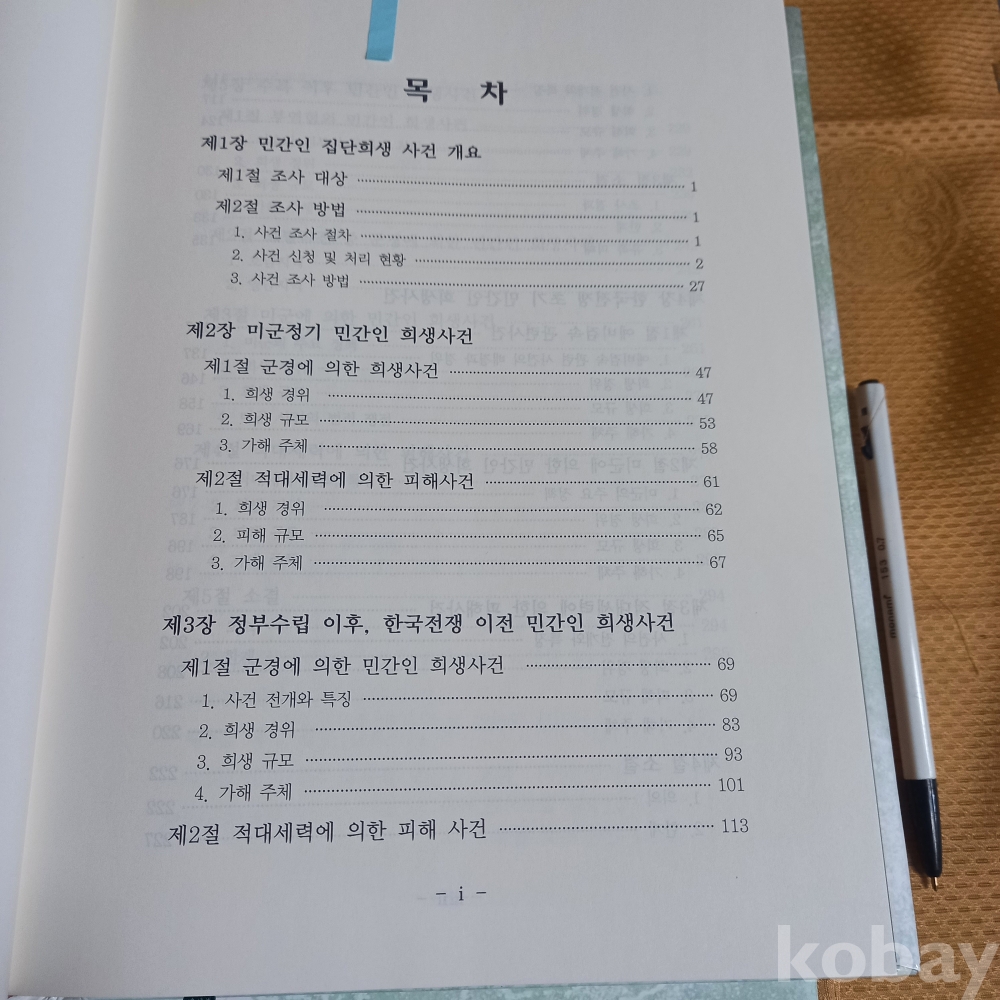 목 차
제1장 민간인 집단희생 사건 개요
제1절 조사 대상 1
제2절 조사 방법 1
1. 사건 조사 절차 1
2. 사건 신청 및 처리 현황 2
3. 사건 조사 방법 27
제2장 미군정기 민간인 희생사건
제1절 군경에 의한 희생사건 47
1. 희생 경위 47
2. 희생 규모 53
3. 가해 주체 58
제2절 적대세력에 의한 피해사건 61
1. 희생 경위 62
2. 피해 규모 65
3. 가해 주체 67
제3장 정부수립 이후, 한국전쟁 이전 민간인 희생사건
제1절 군경에 의한 민간인 희생사건 69
1. 사건 전개와 특징 69
2. 희생 경위 83
3. 희생 규모 93
4. 가해 주체 101
제2절 적대세력에 의한 피해 사건 113
- i -
0.7 153
kobay